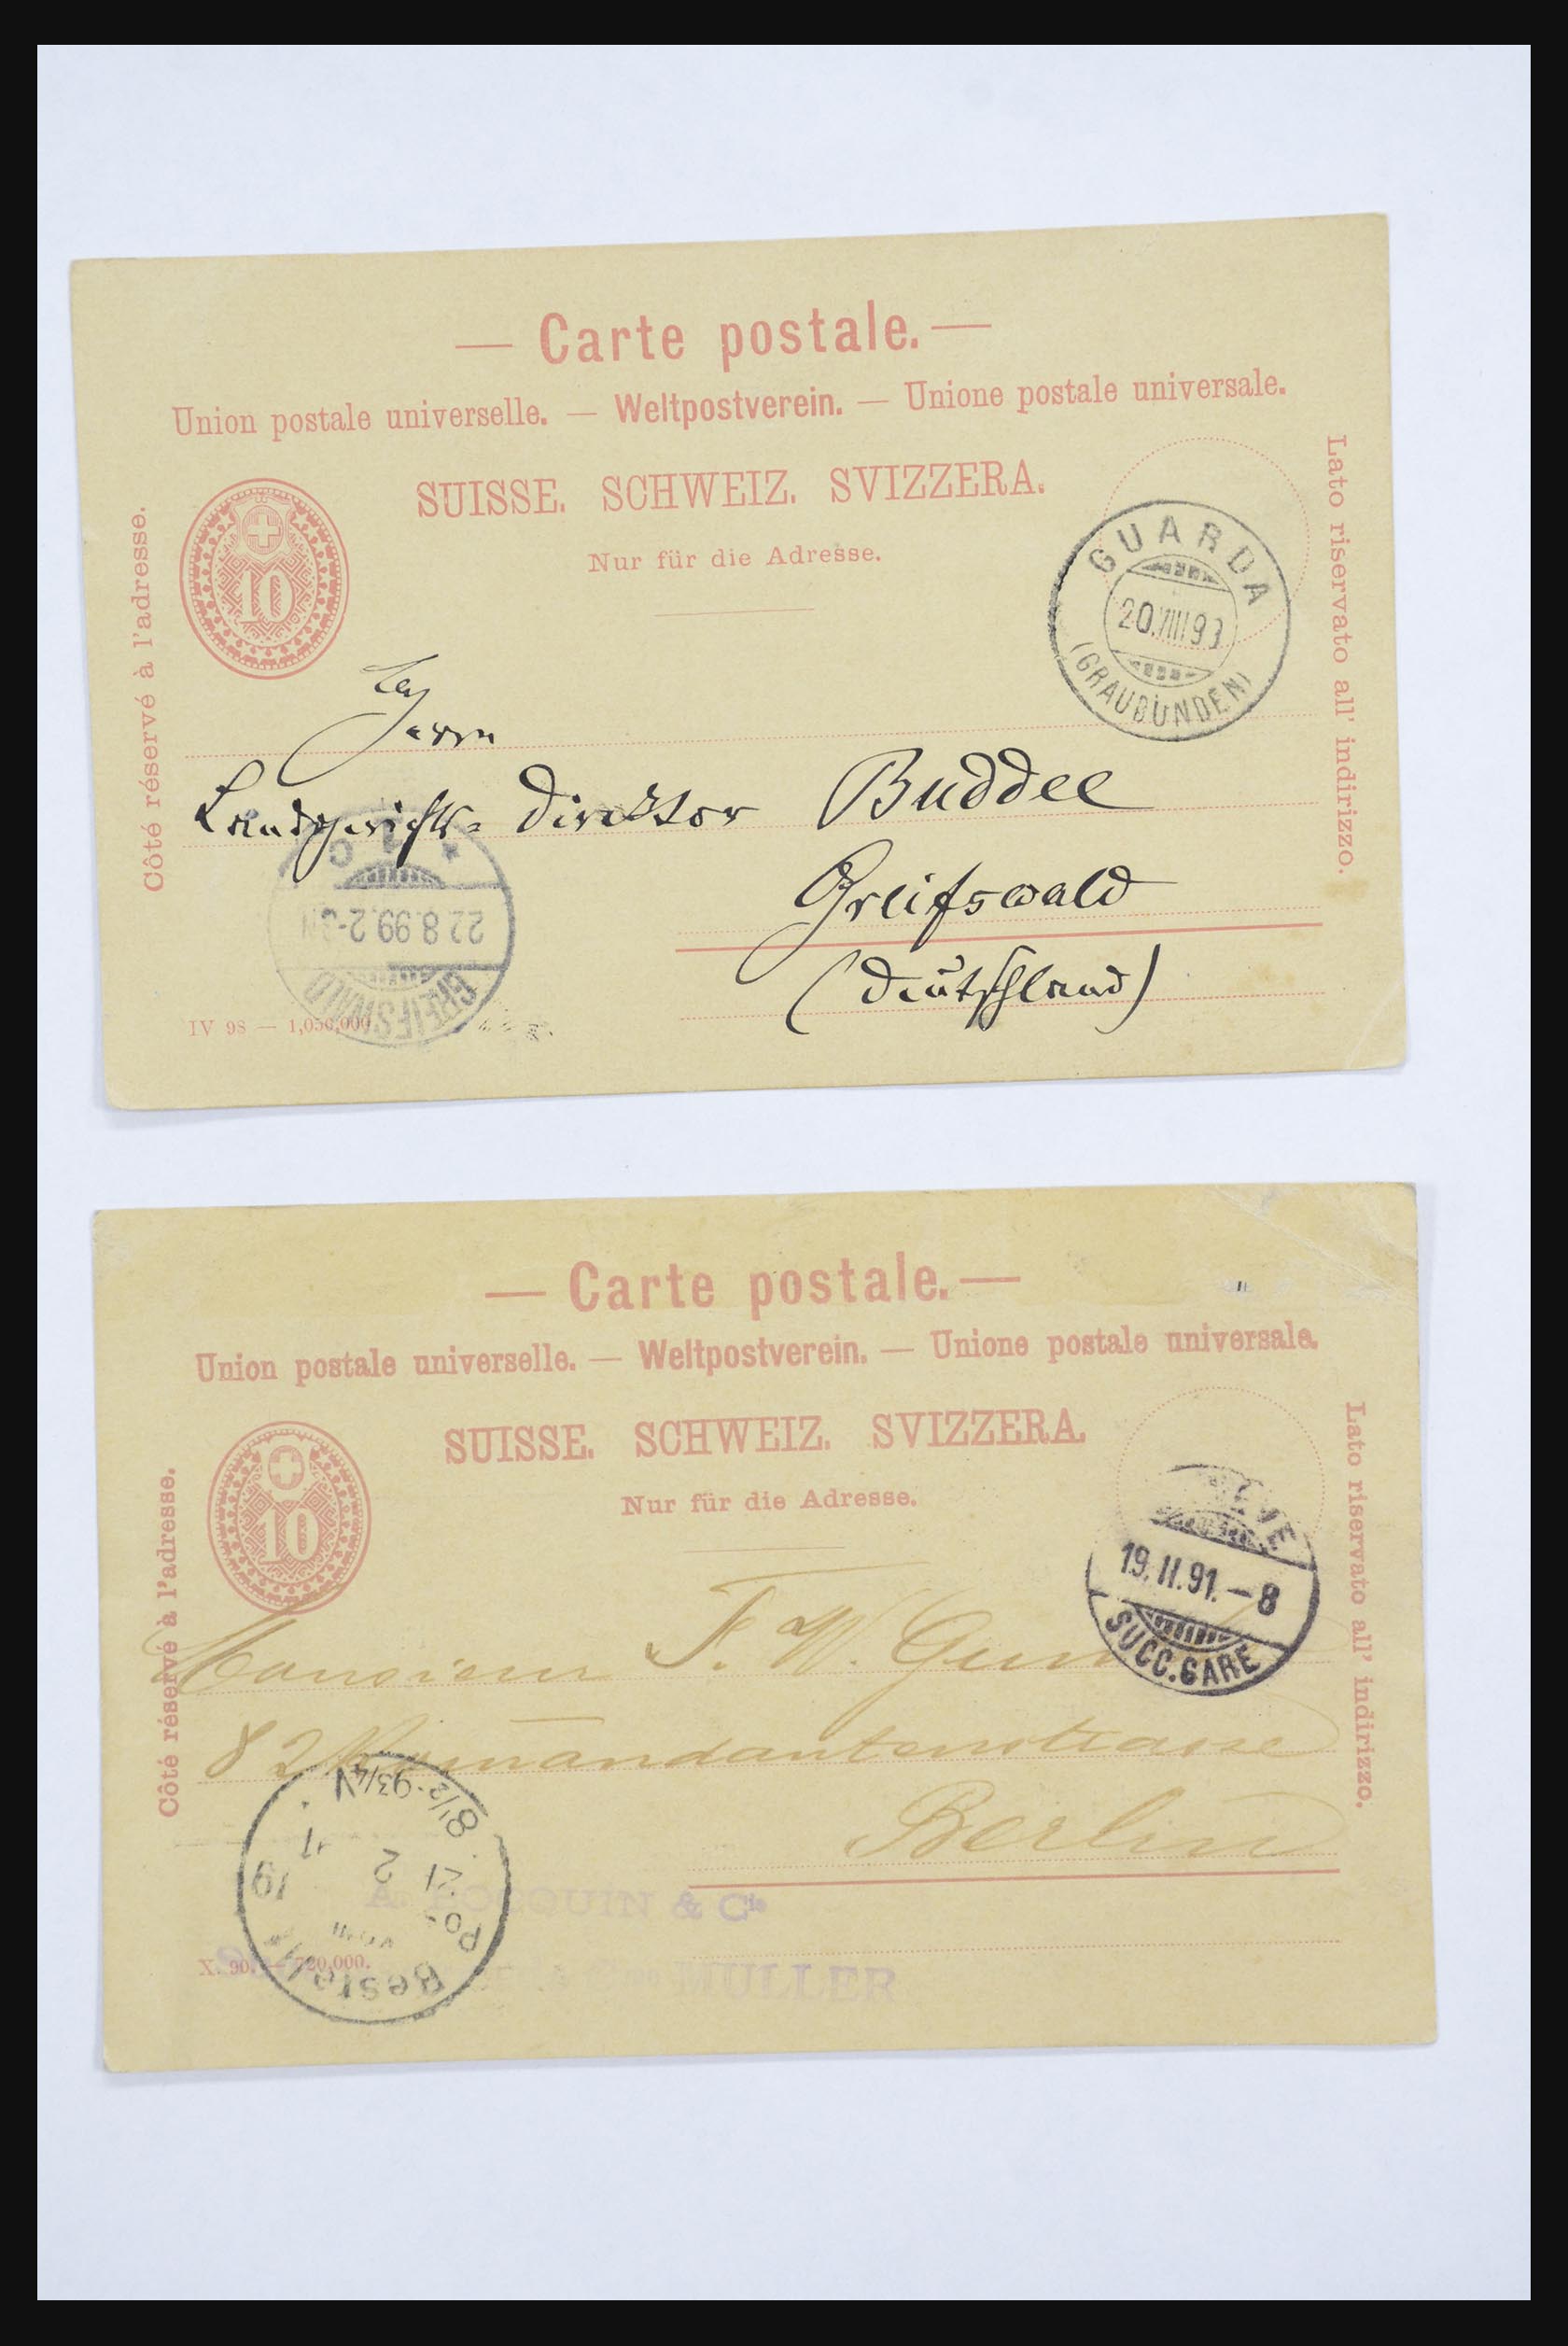 — Carte postale. —
Union postale universelle. — Weltpostverein. — Unione postale universale.
SUISSE. SCHWEIZ. SVIZZERA.
Nur für die Adresse.
Côté réservé à l'adresse.
Lato riservato all' indirizzo.
10
GUARDA
20.VIII 99
(GRAUBÜNDEN)
Herrn
Landgerichts= Direktor Buddee
Greifswald
(Deutschland)
GREIFSWALD
22.8.99.2-3N
* 1 C
IV 98 — 1,050,000
— Carte postale. —
Union postale universelle. — Weltpostverein. — Unione postale universale.
SUISSE. SCHWEIZ. SVIZZERA.
Nur für die Adresse.
Côté réservé à l'adresse.
Lato riservato all' indirizzo.
10
19.II.91.–8
SUCC.GARE
Monsieur F. W.
82 Kommandantenstrasse
Berlin
Bestellt
Post
19 2 91
8 1/2-9 3/4 V.
& Cie
MULLER
X. 90. — 720,000.